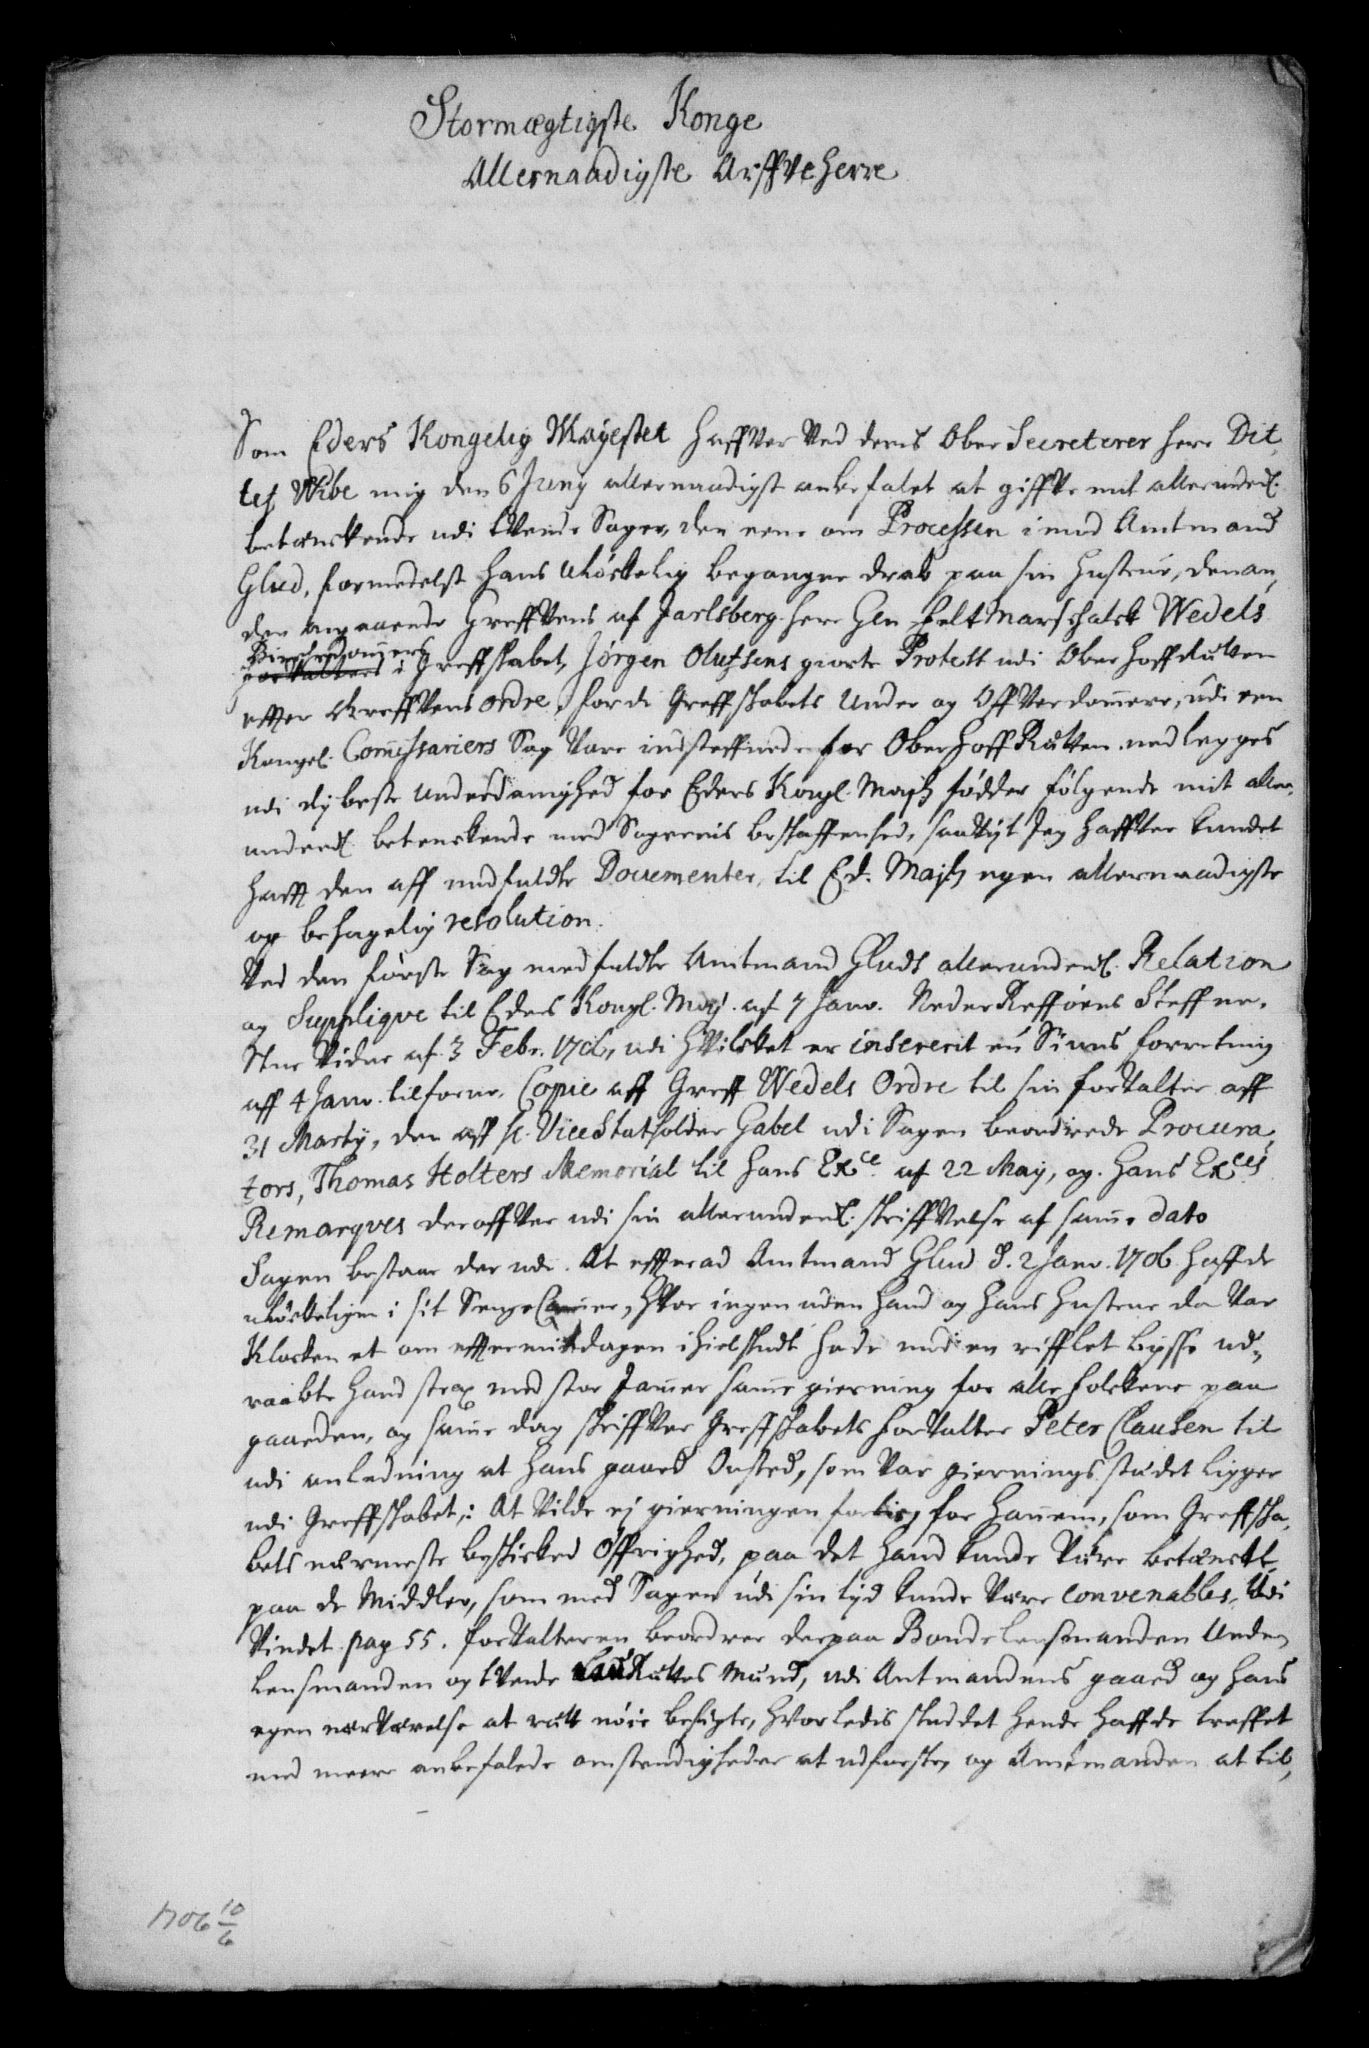 Stormægtigste Konge
Allernaadigste Arffve Herre
Som Eders Kongelig Mayestet haffver ved deris Ober Secreterer herr Dit,
lef Wibe mig den 6 Juny allernaadigst anbefalet at giffve mit allerunderd.
betænckende udi tvende Sager, den eene om Processen imod Amtmand
Glud, formedelst hans uløckelig begangne drab paa sin Hustrue, den an,
den angaaende Greffvens af Jarlsberg herr Gen. Feltmarschalck Wedels
Birchedommers
forvalters i Greffskabet, Jørgen Olufsens giorte Protest udi Oberhoffretten
efter Greffvens ordre, fordi Greffskabets Under og Offverdommere, udi een
Kongel. Commissariers Sag vare indsteffnede for Oberhoff Retten nedlegges
udi dybeste underdanighed for Eders Kongl. Majts fødder følgende mit aller,
underd. betenckende med Sagernis beskaffenhed, saavit Jeg haffver kundet
hafft den aff medfuldte Documenter, til Ed. Majts egen allernaadigste
og behagelig resolution.
Ved den første Sag medfuldte Amtmand Gluds allerunderd. Relation
og Suppliqve til Eders Kongl. Maj. af 7 Janv. Neder Rettens Steffne,
Stue vidne af 3 Febr. 1706, udi hvilcket er insererit en Siuns forretning
aff 4 Janv. tilforne. Copie aff Greff Wedels Ordre til sin forvalter aff
31 Marty, den aff hr. Vice Statholder Gabel udi Sagen beordrede Procura,
tors, Thomas Holters Memorial til hans Exce. af 22 May, og hans Exces
Remarqves deroffver udi sin allerunderd. skriffvelse af samme dato
Sagen bestaar der udi. At efterat Amtmand Glud d. 2 Janv. 1706 haffde
uløckeligen i sit Senge Camer, hvor ingen uden hand og hans Hustrue da var
Klocken et om eftermiddagen ihielskudt hede med en rifflet bysse ud,
raabte hand strax med stor Jammer samme gierning for alle folckene paa
gaarden, og samme dag skriffver Greffskabets forvalter Peter Clausen til
udi anledning at hans gaard Onsted, som var gierningsstædet ligger
udi Greffskabet,: At vilde ej gierningen for hannem, som Greffska,
bets nærmeste beskicked Øffrighed, paa det hand kunde være betænckt
paa de Middler, som med Sagen udi sin tid kunde være convenables, udi
vindet pag 55. forvalteren beordrer derpaa Bonde lensmanden Under
lensmanden og tvende LaugRettes Mænd, udi Amtmandens gaard og hans
egen nærværelse at rætt nøie besigte, hvorledis skuddet hende haffde treffet
med meere anbefalede omstendigheder at udforske, og Amtmanden at til,
1706 10/6